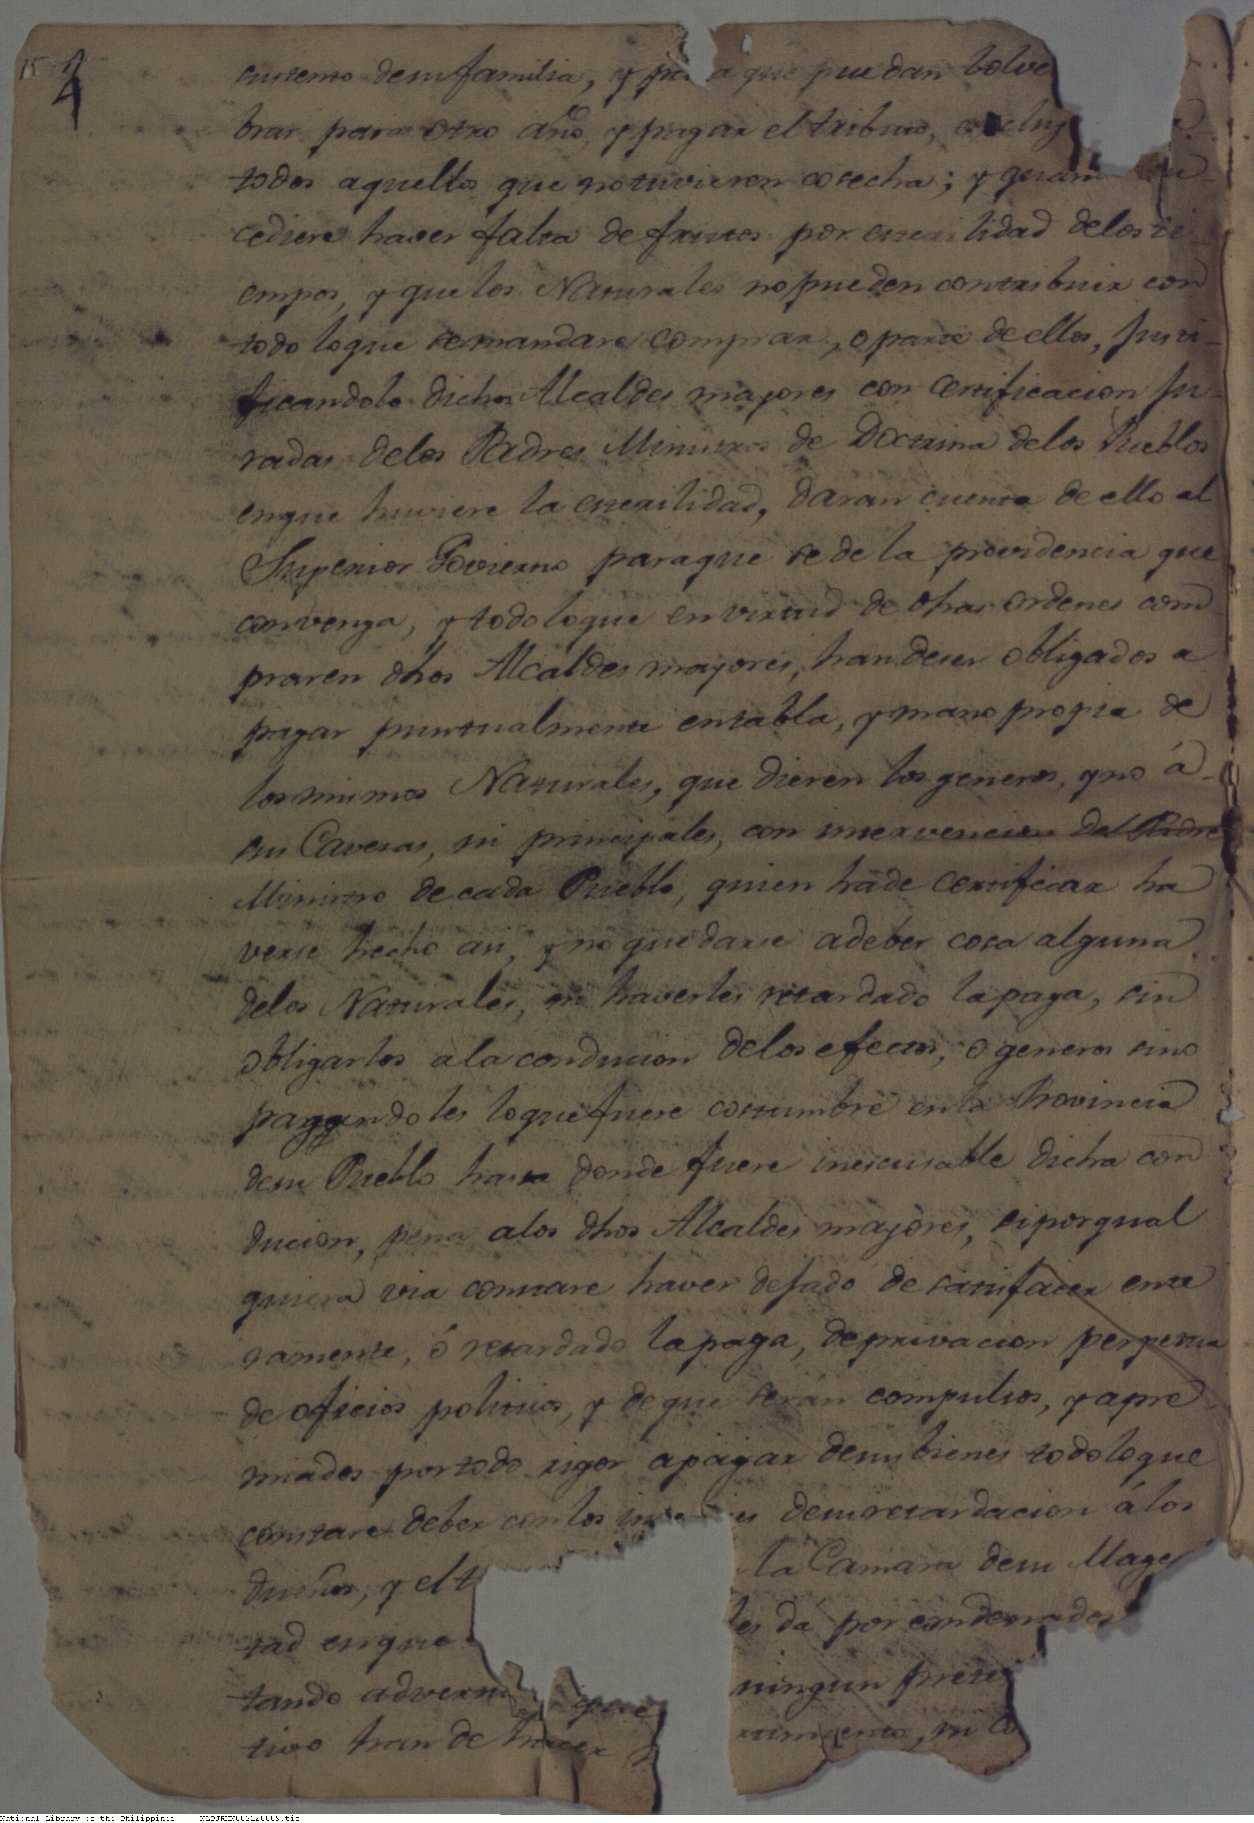 15 4
sustento de su familia, y pa a que puedan bolve
brar para otro año, y pagar el tributo,
todos aquellos que no tuvieron cosecha; y
cediere haver falta de frutos por esterilidad delos ti
empos, y que los Naturales no pueden contribuir con
todo loque se mandare comprar, o parte de ellos, justi-
ficandolo dichos Alcaldes mayores con Certificacion ju-
radas delos Padres Ministros de Doctrina delos Pueblos
enque huviere la esterilidad, daran cuenta de ello al
Superior Govierno paraque se de la providencia que
convenga, y todo loque en virtud de dhas ordenes com
praren dhos Alcaldes mayores, han deser obligados a
pagar puntualmente entabla, y mano propria de
los mismos Naturales, que dieren los generos, y no á-
sus Cavezas, ni principales, con intervencion del Padre
Ministro de cada Pueblo, quien hade certificar ha
verse hecho asi, y no quedarse adeber cosa alguna
delos Naturales, ni haverles retardado la paga, sin
obligarlos ala conducion delos efectos, o generos sino
pagandoles loque fuere costumbre enla Provincia
desu Pueblo hasta donde fuere inescusable dicha con
ducion, pena alos dhos Alcaldes mayores, si por qual
quiera via constare haver dejado de satisfacer ente
ramente, ó retardado la paga, de privacion perpetua
de oficios politicos, y de que serán compulsos, y apre
miados por todo rigor apagar desus bienes todo loque
constare deber con los desu retardacion á los
dueños, y el t la Camara desu Mages
tad enque les dá por condenados
tando advert que ningun pretes
tivo han de hacer rtimiento, ni co